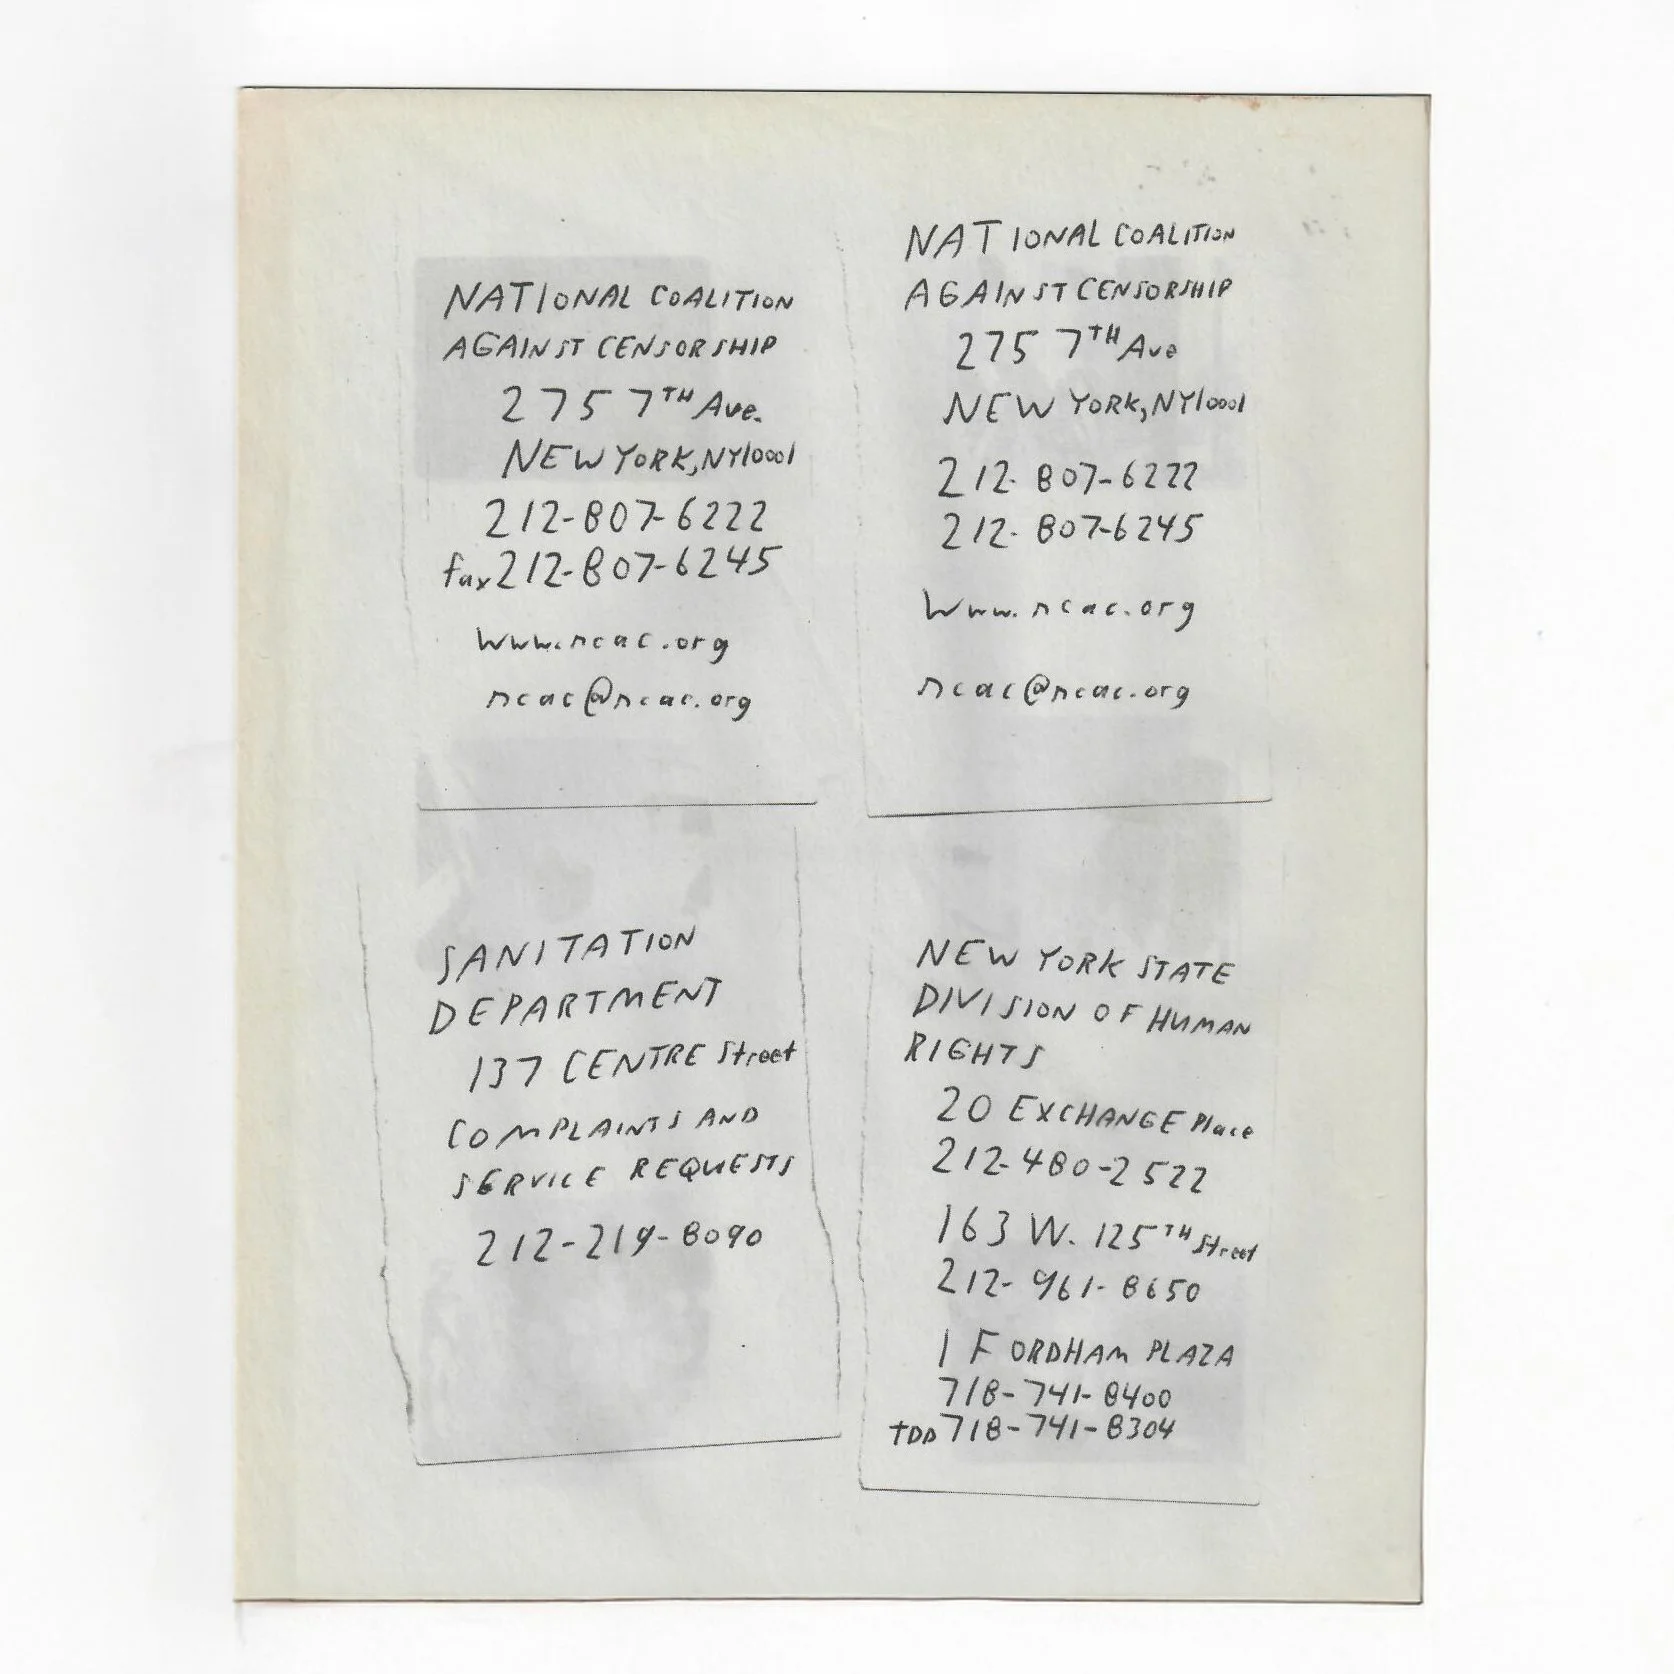 NATIONAL COALITION
AGAINST CENSORSHIP
275 7TH Ave.
NEW YORK, NY10001
212-807-6222
fax 212-807-6245
www.ncac.org
ncac@ncac.org
NATIONAL COALITION
AGAINST CENSORSHIP
275 7TH Ave
NEW YORK, NY10001
212-807-6222
212-807-6245
www.ncac.org
ncac@ncac.org
SANITATION
DEPARTMENT
137 CENTRE Street
COMPLAINTS AND
SERVICE REQUESTS
212-219-8090
NEW YORK STATE
DIVISION OF HUMAN
RIGHTS
20 EXCHANGE Place
212-480-2522
163 W. 125TH Street
212-961-8650
1 FORDHAM PLAZA
718-741-8400
TDD 718-741-8304